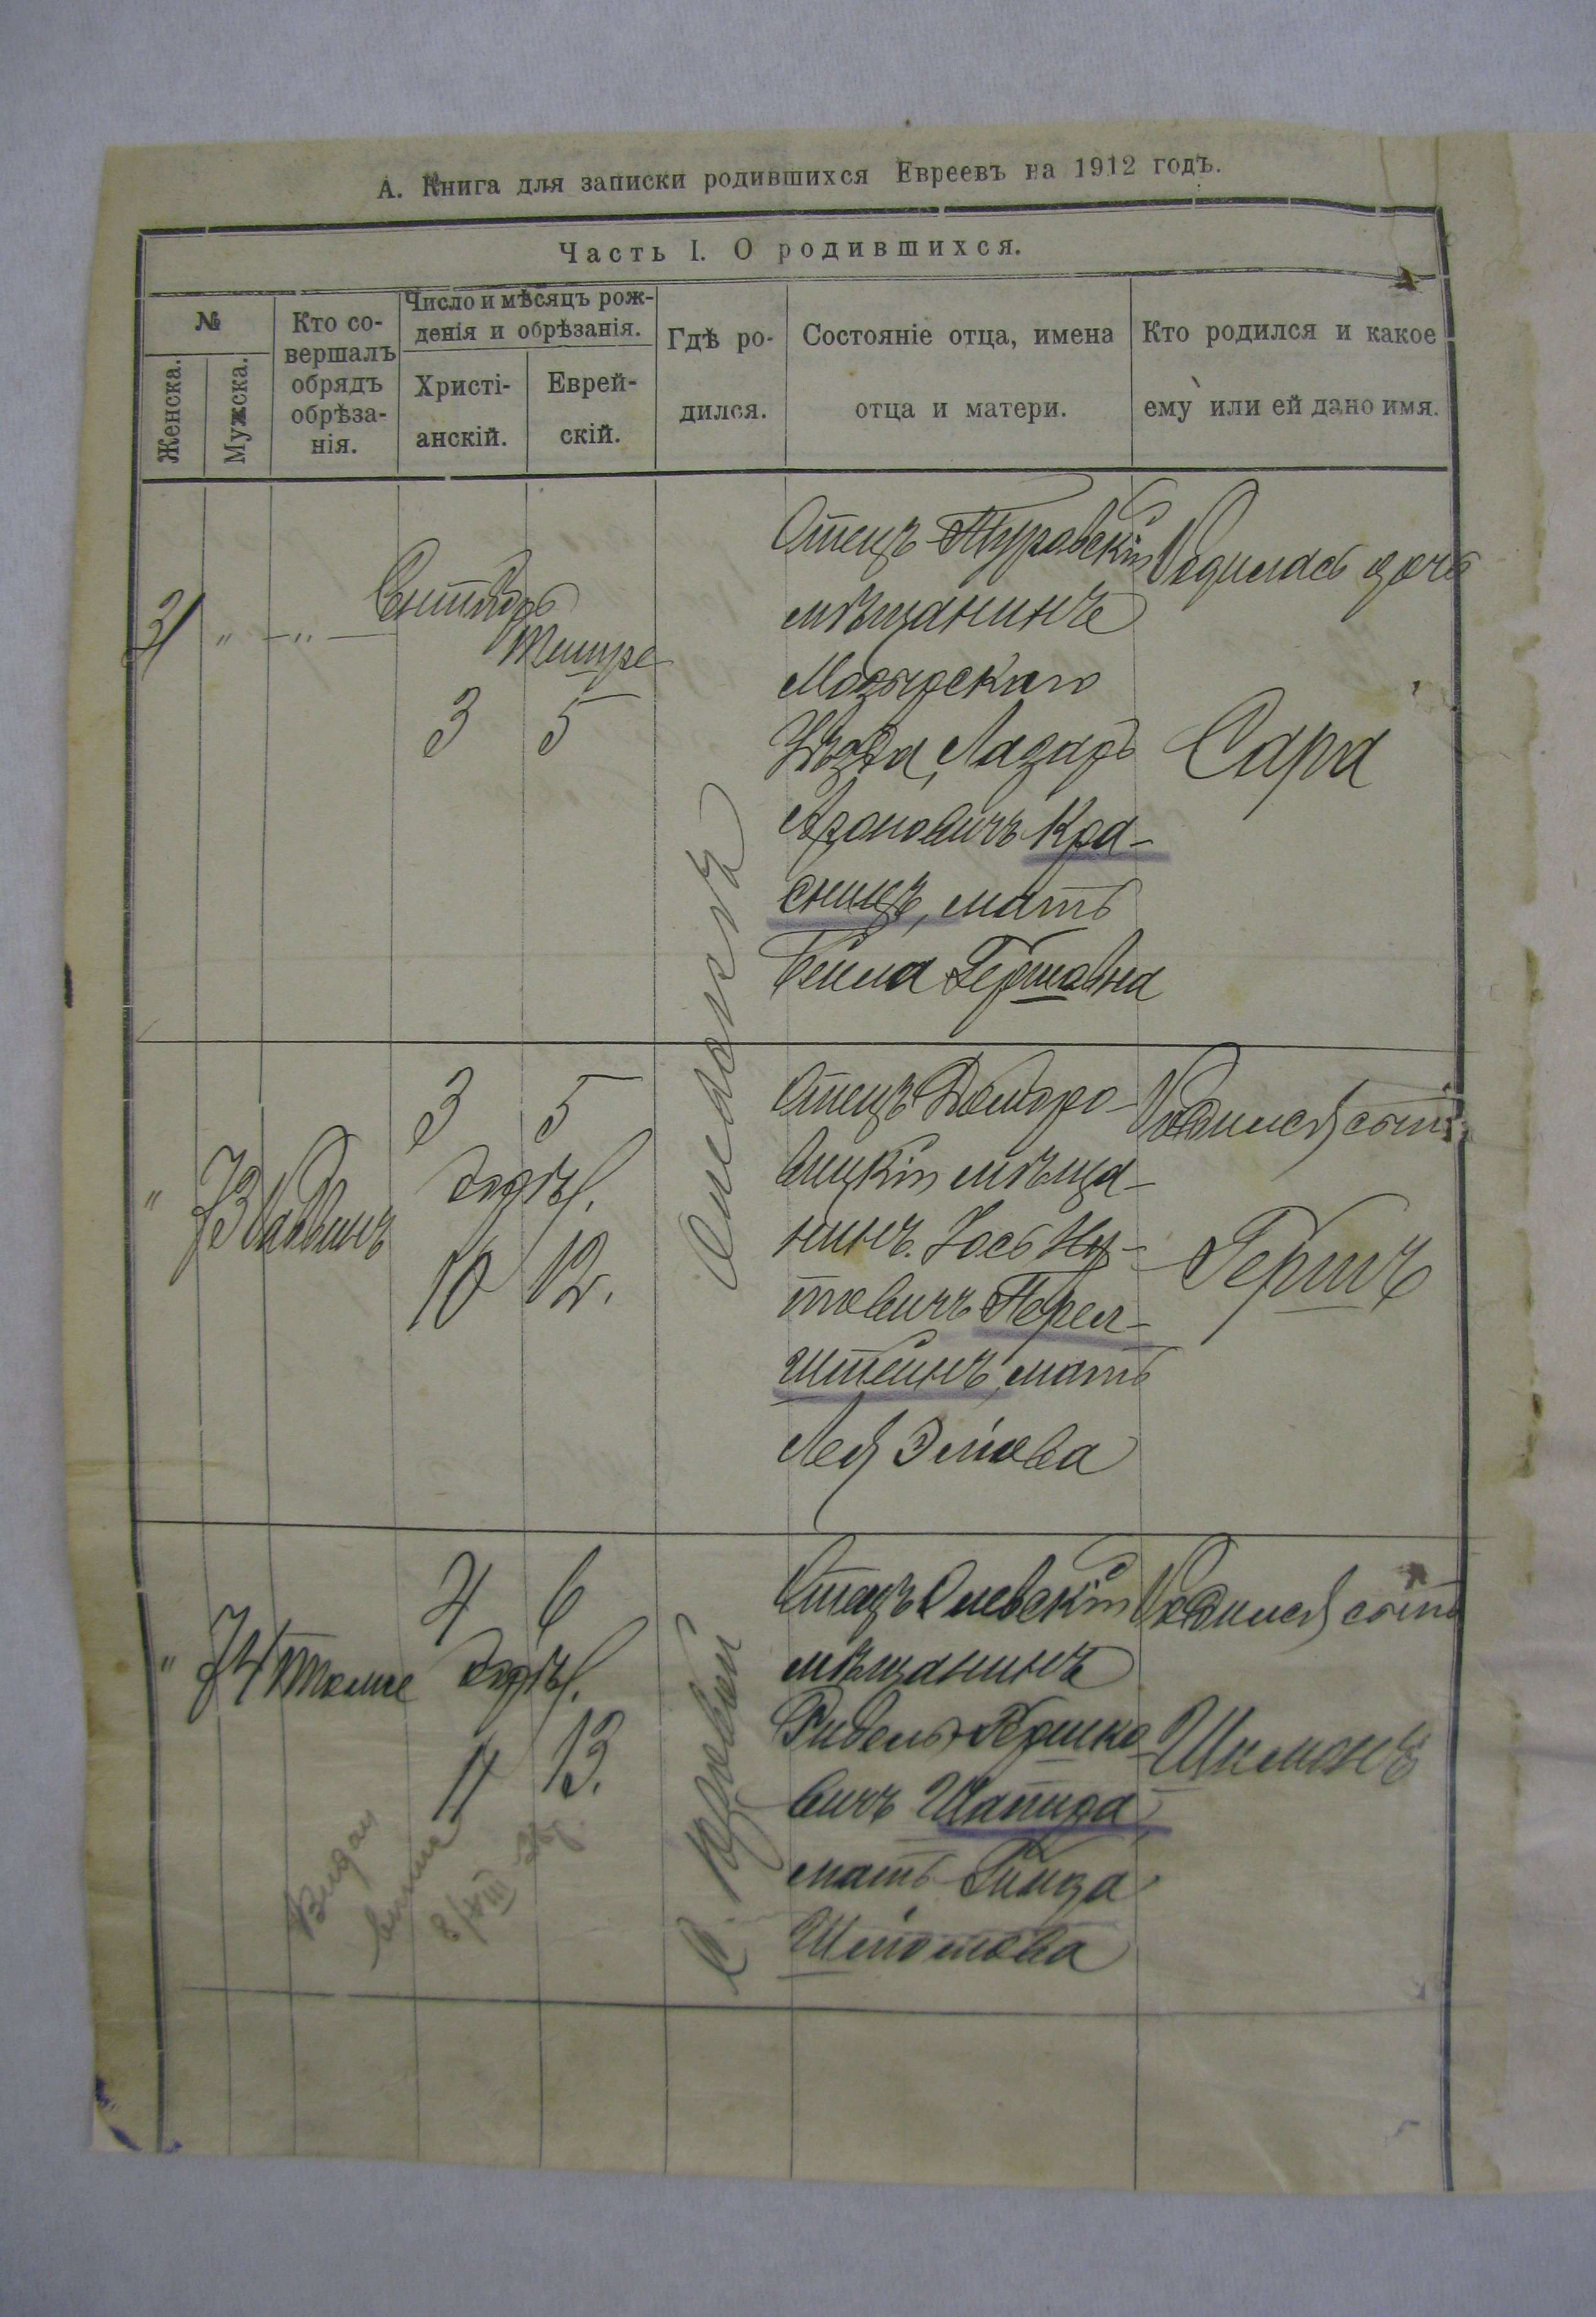 А. Книга для записки родившихся Евреевъ на 1912 годъ.
Часть I. О родившихся.
№
Женска.
Мужска.
Кто со-
вершалъ
обрядъ
обрѣза-
нія.
Число и мѣсяцъ рож-
денія и обрѣзанія.
Христі-
анскій.
Еврей-
скій.
Гдѣ ро-
дился.
Состояніе отца, имена
отца и матери.
Кто родился и какое
ему или ей дано имя.
31 " —"—
Сентябрь
Тишре
3 5
Отецъ Туровскій
мѣщанинъ
Мозырскаго
Уѣзда, Лазарь
Ароновичъ Кра-
сницъ, мать
Бейла Гершовна
Родилась дочь
Сара
Олевскъ
" 73 Раввинъ
3 5
обрѣз.
10 12.
Отецъ Домбро-
вицкій мѣща-
нинъ Іось Ну-
товичъ Перел-
штейнъ, мать
Лея Эліова
Родился сынъ
Гершъ
" 74 Тоже
4 6
обрѣз.
11 13.
Отецъ Олевскій
мѣщанинъ
Фидель Гершко-
вичъ Шапира,
мать Гинда
Шліомова
Родился сынъ
Шимонъ
Видан